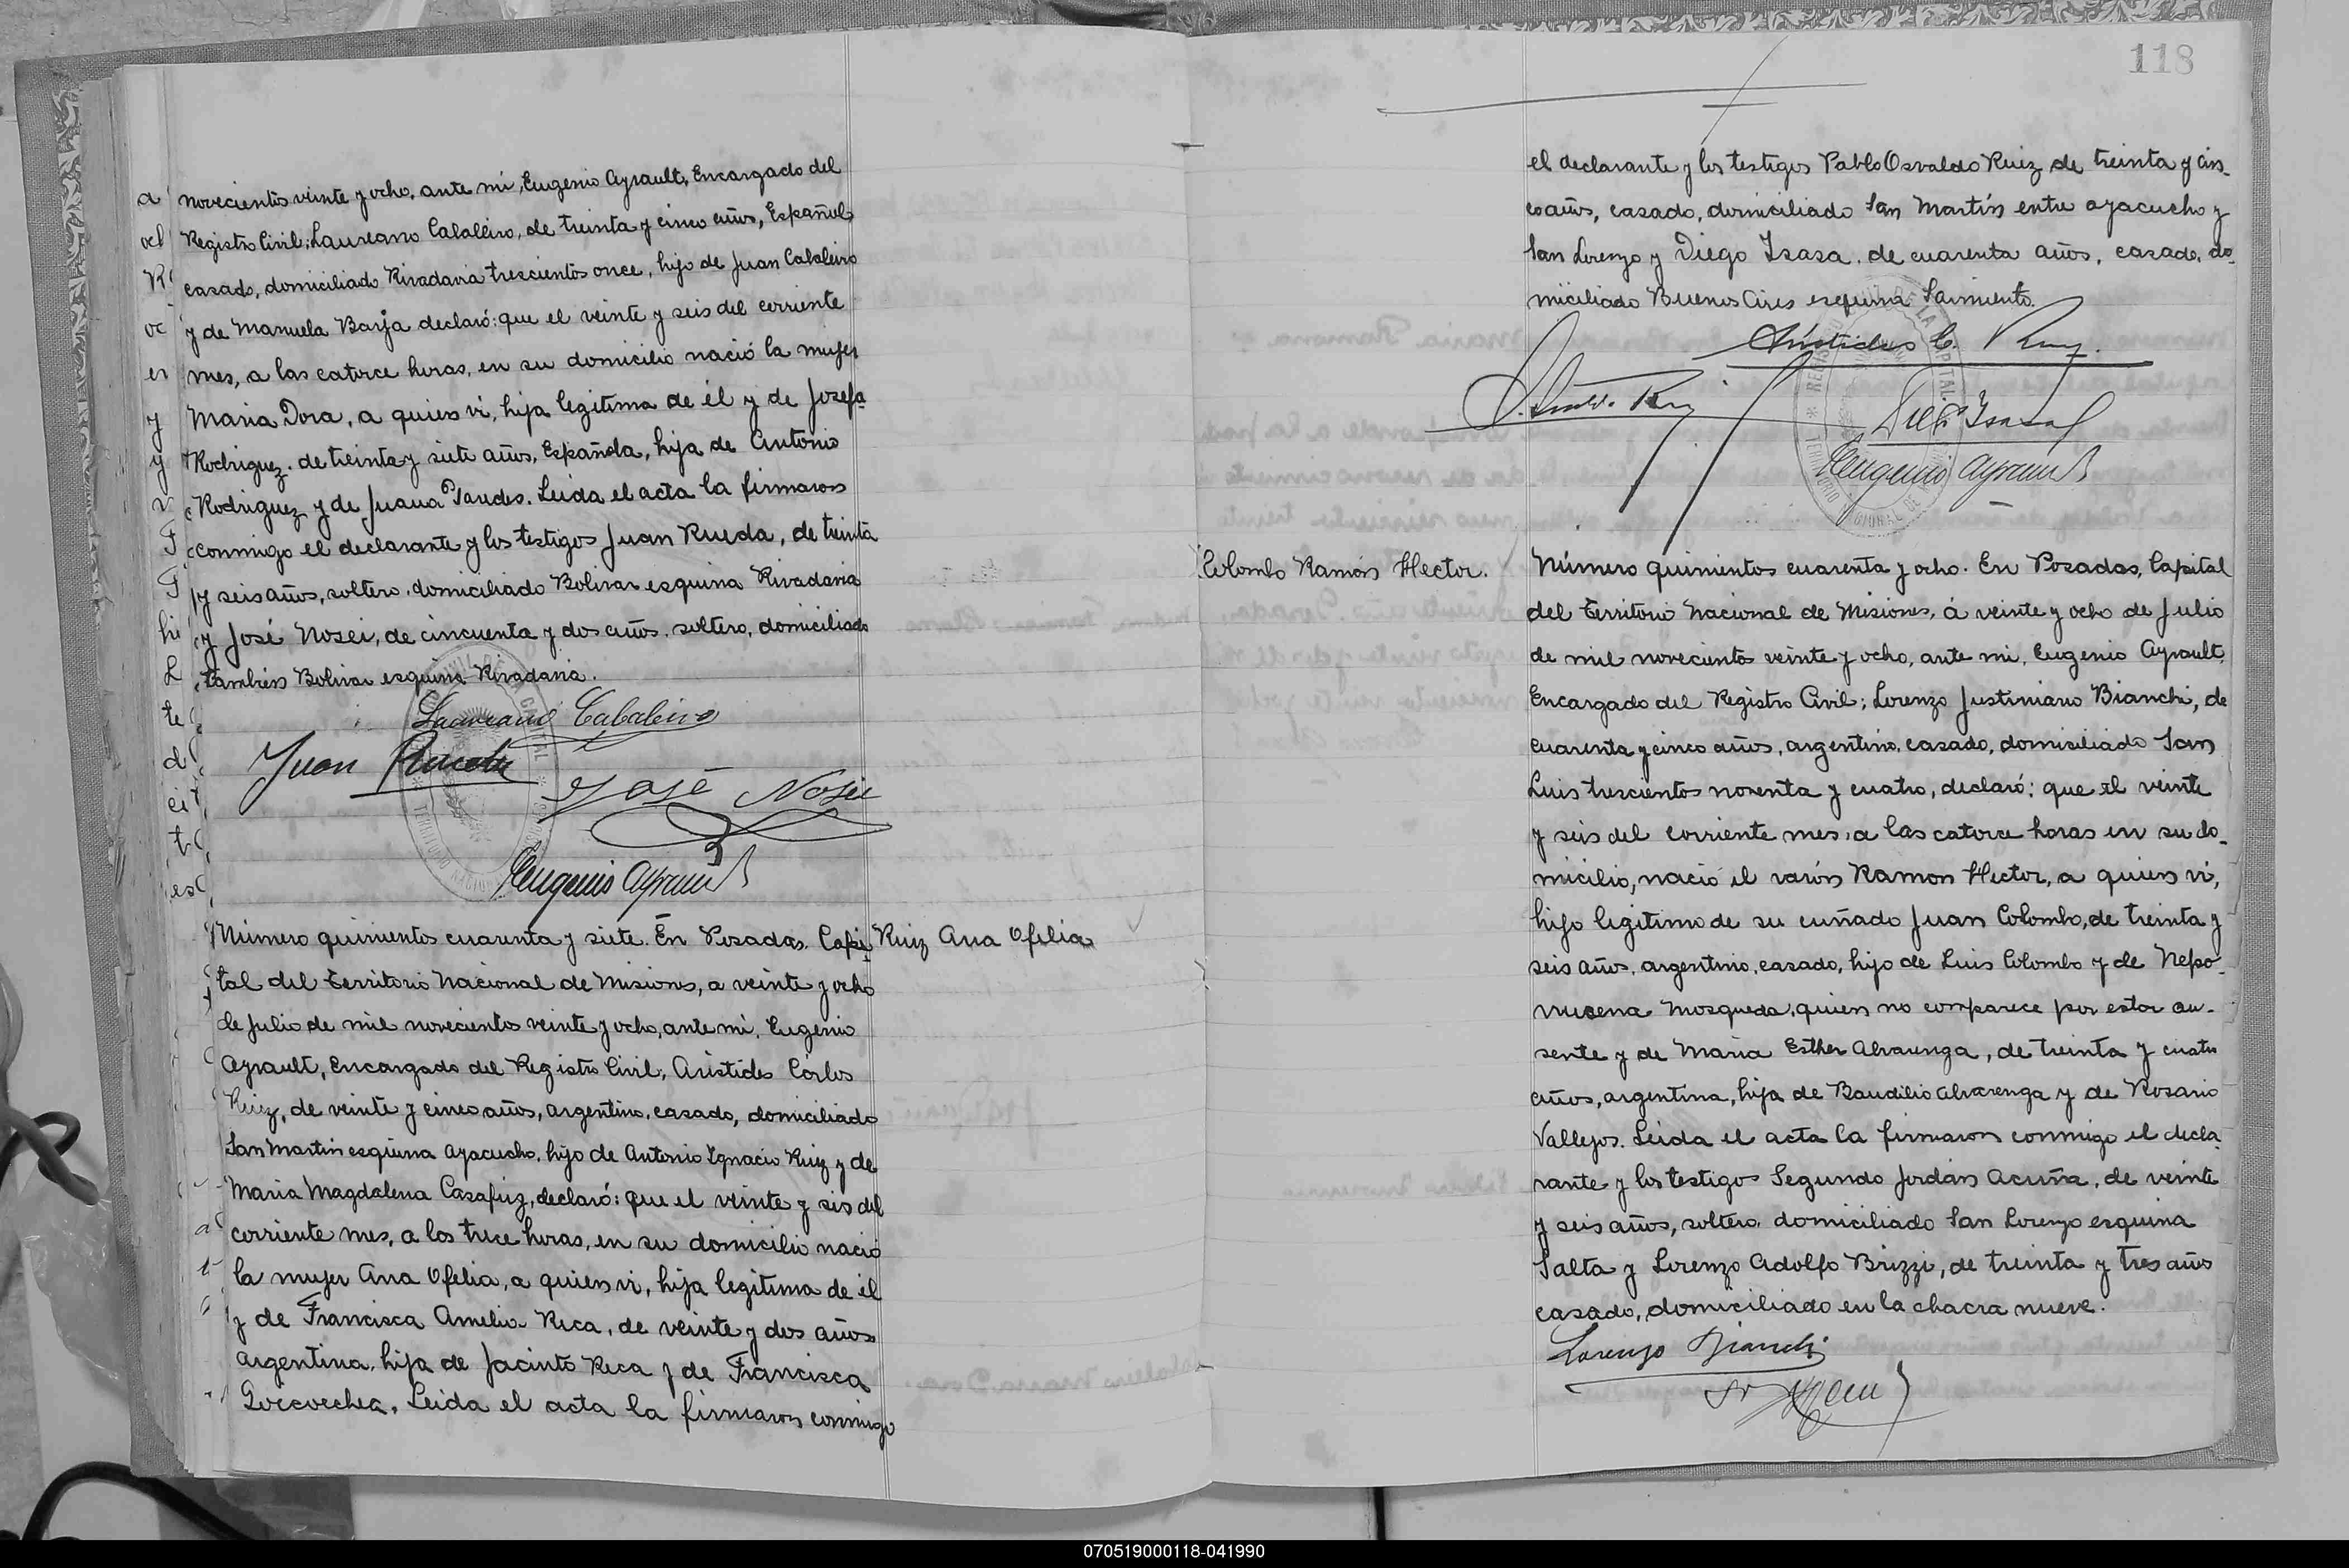 novecientos veinte y ocho, ante mí, Eugenio Ayrault, Encargado del
Registro Civil; Laureano Cabaleiro, de treinta y cinco años, Español,
casado, domiciliado Rivadavia trescientos once, hijo de Juan Cabaleiro
y de Manuela Barja declaró: que el veinte y seis del corriente
mes, a las catorce horas, en su domicilio nació la mujer
Maria Dora, a quien vi, hija legitima de él y de Josefa
Rodriguez, de treinta y siete años, Española, hija de Antonio
Rodriguez y de Juana. Leida el acta la firmaron
conmigo el declarante y los testigos Juan Rueda, de treinta
y seis años, soltero, domiciliado Bolivar esquina Rivadavia
y José Nosei, de cincuenta y dos años, soltero, domiciliado
tambien Bolivar esquina Rivadavia.
Laureano Cabaleiro
Juan Rueda
José Nosei
Eugenio Ayrault
Ruiz Ana Ofelia
Número quinientos cuarenta y siete. En Posadas, Capi-
tal del Territorio Nacional de Misiones, a veinte y ocho
de Julio de mil novecientos veinte y ocho, ante mí, Eugenio
Ayrault, Encargado del Registro Civil, Aristides Cárlos
Ruiz, de veinte y cinco años, argentino, casado, domiciliado
San Martin esquina Ayacucho, hijo de Antonio Ygnacio Ruiz y de
Maria Magdalena Casafuz, declaró: que el veinte y seis del
corriente mes, a las trece horas, en su domicilio nació
la mujer Ana Ofelia, a quien vi, hija legitima de él
y de Francisca Amelia Reca, de veinte y dos años
argentina, hija de Jacinto Reca y de Francisca
Goicoechea. Leida el acta la firmaron conmigo
118
el declarante y los testigos Pablo Osvaldo Ruiz de treinta y cin-
co años, casado, domiciliado San Martín entre Ayacucho y
San Lorenzo y Diego Isasa, de cuarenta años, casado, do-
miciliado Buenos Aires esquina Sarmiento.
Aristides C. Ruiz.
Diego Isasa
Eugenio Ayrault
Colombo Ramón Hector.
Número quinientos cuarenta y ocho. En Posadas, Capital
del Territorio Nacional de Misiones, á veinte y ocho de Julio
de mil novecientos veinte y ocho, ante mi, Eugenio Ayrault,
Encargado del Registro Civil; Lorenzo Justiniano Bianchi, de
cuarenta y cinco años, argentino, casado, domiciliado San
Luis trescientos noventa y cuatro, declaró: que el veinte
y seis del corriente mes, a las catorce horas en su do-
micilio, nació el varón Ramon Hector, a quien vi,
hijo legitimo de su cuñado Juan Colombo, de treinta y
seis años, argentino, casado, hijo de Luis Colombo y de Nepo-
mucena Mosqueda, quien no comparece por estar au-
sente y de Maria Esther Alvarenga, de treinta y cuatro
años, argentina, hija de Baudilio Alvarenga y de Rosario
Vallejos. Leida el acta la firmaron conmigo el decla-
rante y los testigos Segundo Jordán Acuña, de veinte
y seis años, soltero, domiciliado San Lorenzo esquina
Salta y Lorenzo Adolfo Brizzi, de treinta y tres años
casado, domiciliado en la chacra nueve.
Lorenzo Bianchi
070519000118-041990